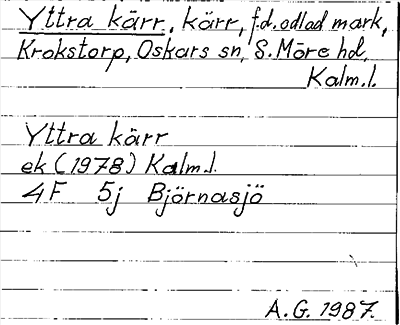 Yttra kärr, kärr, f.d. odlad mark,
Krokstorp, Oskars sn, S. Möre hd,
Kalm.l.
Yttra kärr
ek (1978) Kalm.l.
4F 5j Björnasjö
A.G. 1987.